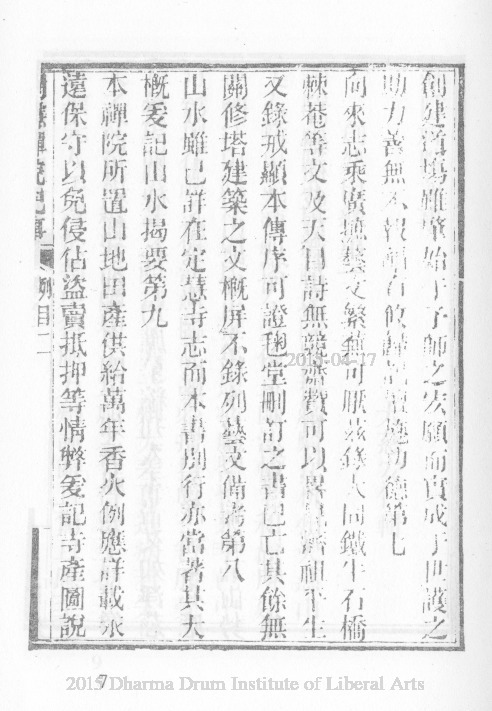 創建道場雖肇始于予師之宏願而實成于世護之
助力善無不報 施功德第七
向來志乘廣 藝文繁 可厭茲錄大同鐵牛石橋
棘菴等文及天目詩無 可以畧見濟祖平生
又錄戒顯本傳序可證 堂刪訂之書已亡其餘無
關修塔建築之文槪屏不錄列藝文備考第八
山水雖已詳在定慧寺志而本書別行亦當著其大
槪爰記山水揭要第九
本禪院所置山地田產供給萬年香火例應詳載永
遠保守以免侵佔盜賣抵押等情弊爰記寺產圖說
禪院記事 例目 二
2015-04-17
7
2015 Dharma Drum Institute of Liberal Arts